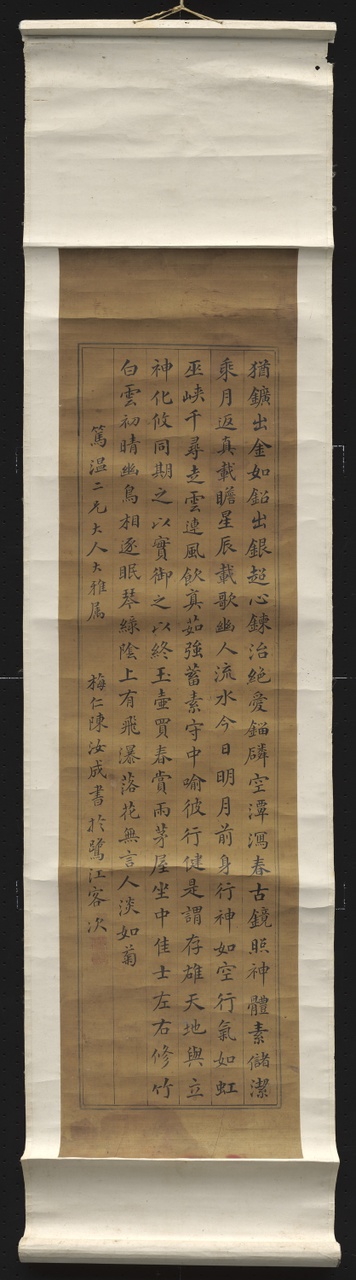 猶鑛出金如鉛出銀超心鍊治絶愛錙磷空潭瀉春古鏡照神體素儲潔
乘月返真載瞻星辰載歌幽人流水今日明月前身行神如空行氣如虹
巫峽千尋走雲連風飲真茹強蓄素守中喻彼行健是謂存雄天地與立
神化攸同期之以實御之以終玉壺買春賞雨茅屋坐中佳士左右修竹
白雲初晴幽鳥相逐眠琴綠陰上有飛瀑落花無言人淡如菊
篤温二兄大人大雅属
梅仁陳汝成書於鷺江客次